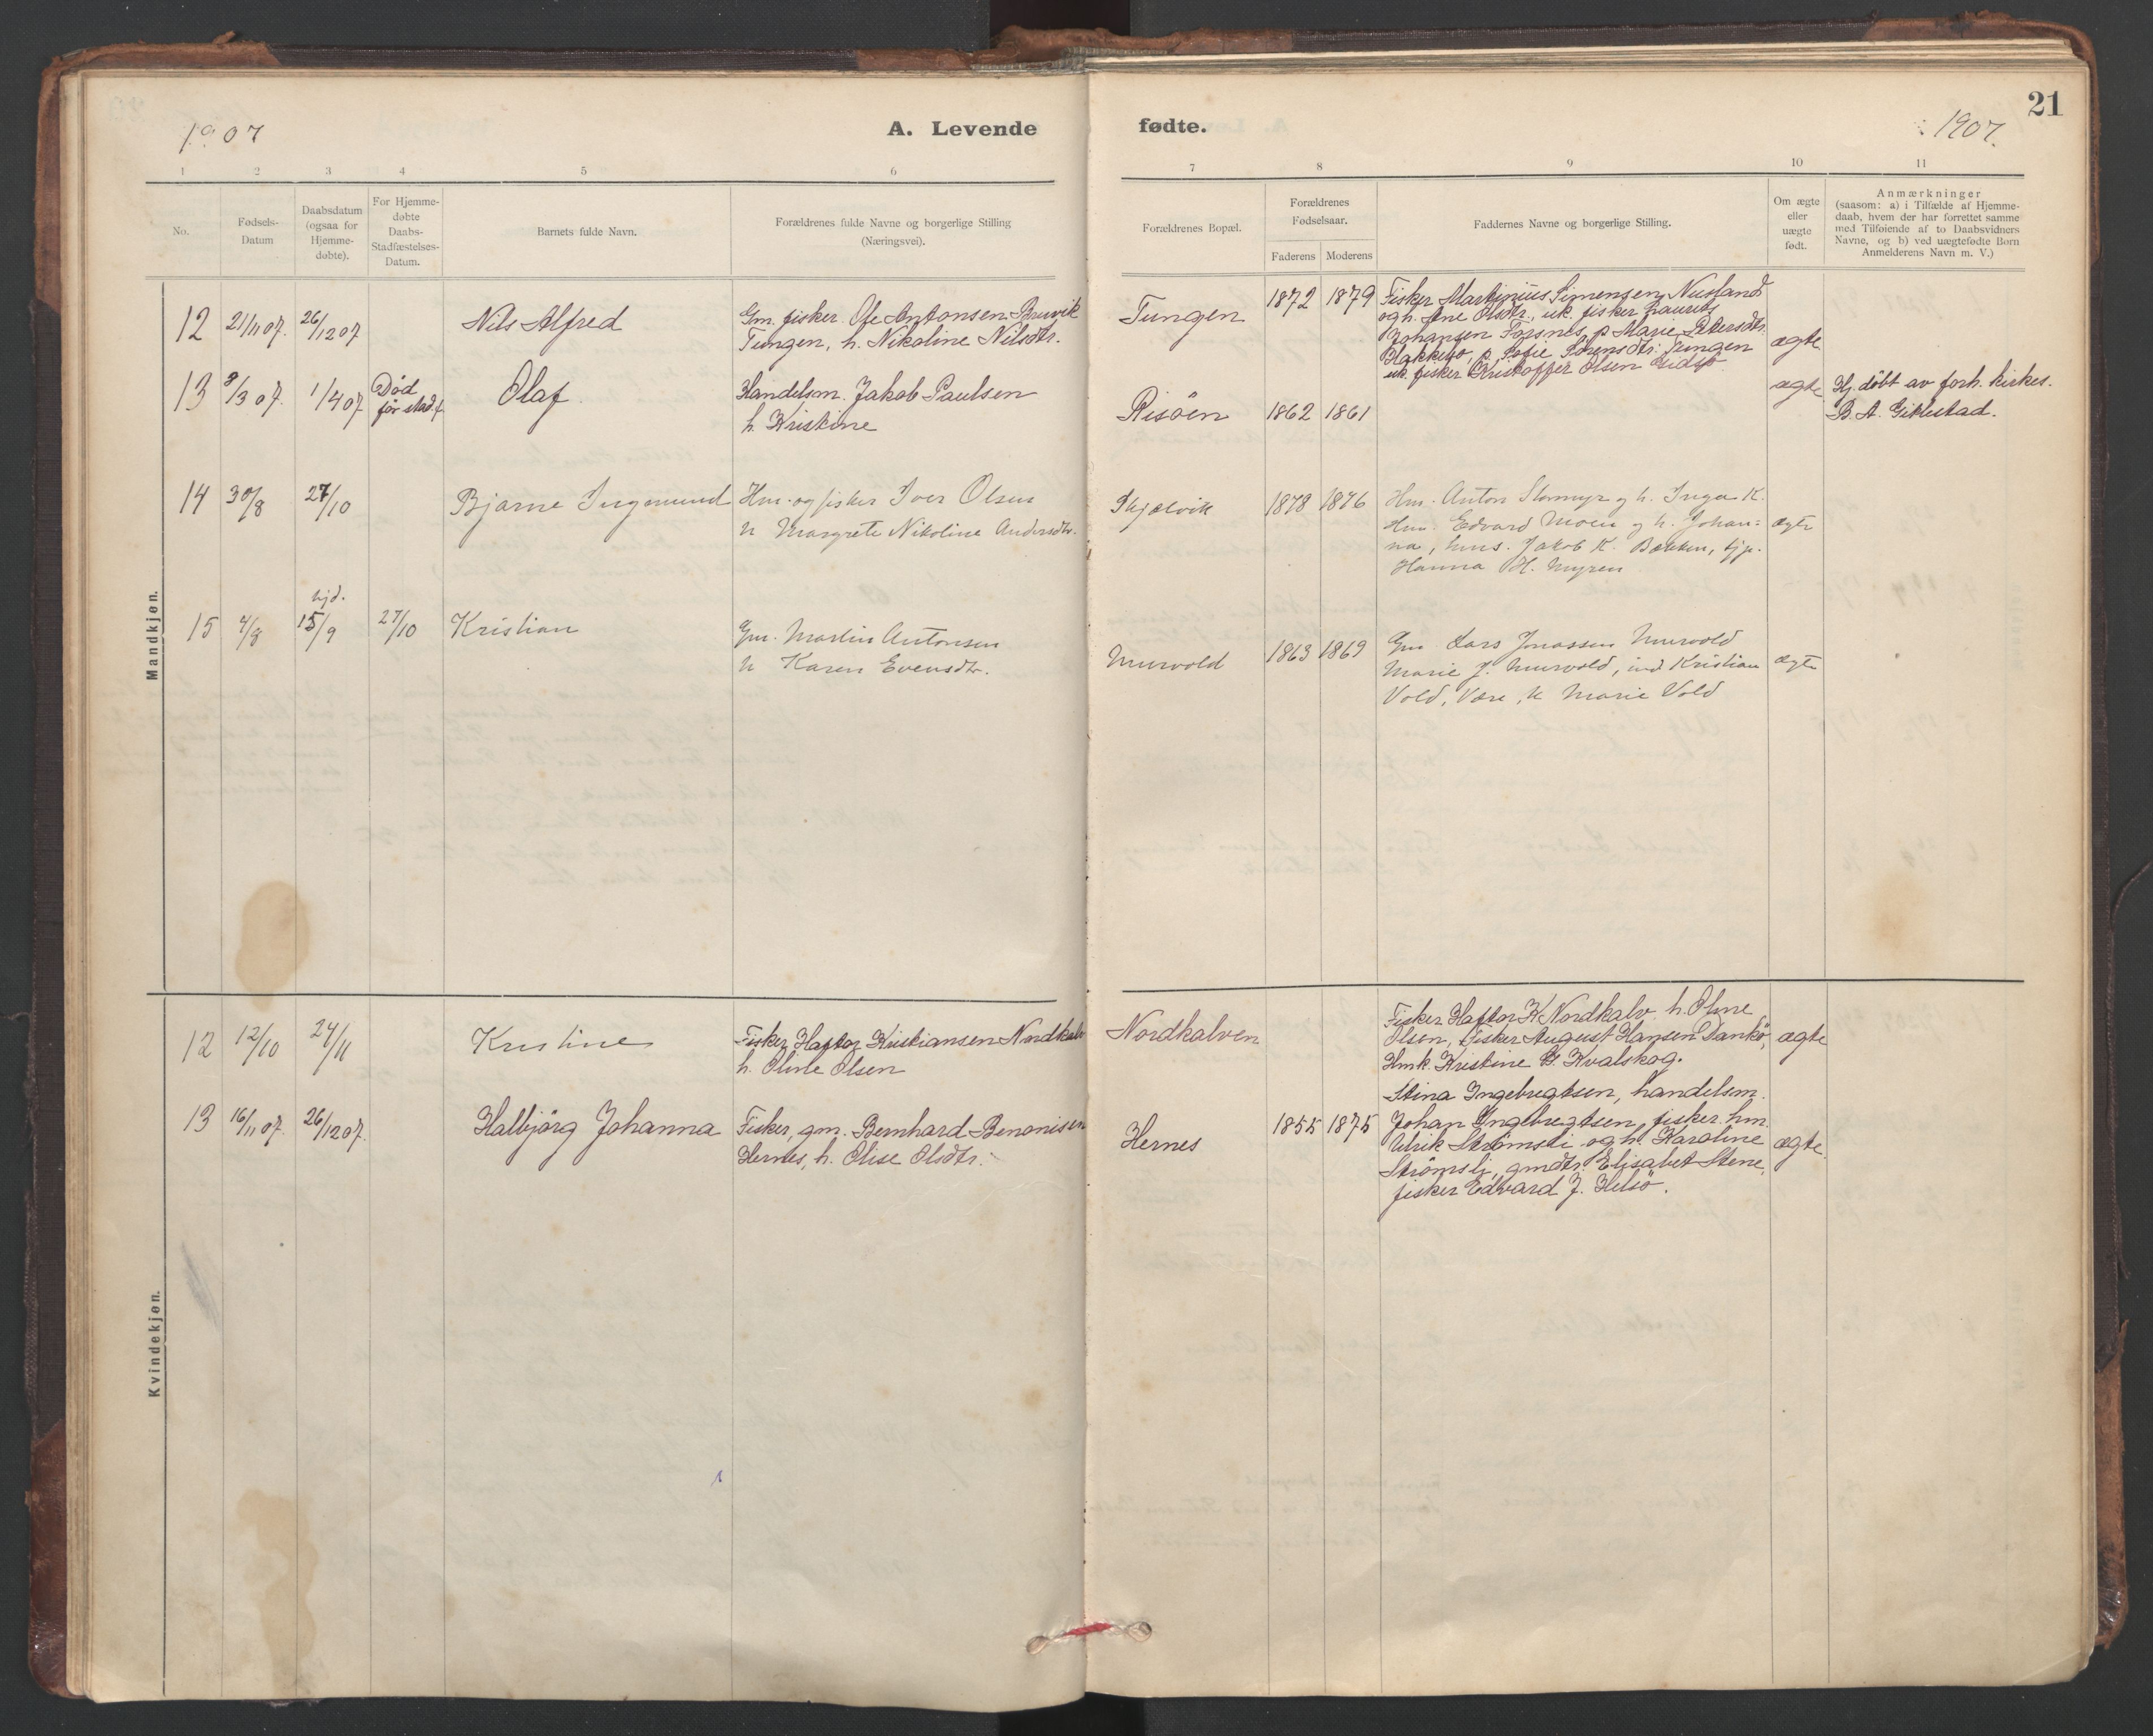 21
1907
A. Levende fødte.
1907.
1 2 3 4 5 6 7 8 9 10 11
No.
Fødsels-
Datum
Daabsdatum
(ogsaa for
Hjemme-
døbte).
For Hjemme-
døbte
Daabs-
Stadfæstelses-
Datum.
Barnets fulde Navn.
Forældrenes fulde Navne og borgerlige Stilling
(Næringsvei).
Forældrenes Bopæl.
Forældrenes
Fødselsaar.
Faderens Moderens
Faddernes Navne og borgerlige Stilling.
Om ægte
eller
uægte
født.
Anmærkninger
(saasom: a) i Tilfælde af Hjemme-
daab, hvem der har forrettet samme
med Tilføiende af to Daabsvidners
Navne, og b) ved uægtefødte Børn
Anmelderens Navn m. V.)
Mandkjøn.
12 21/11 07. 26/12 07
Nils Alfred
Gm. fisker Ole Antonsen Bruvik
Tungen, h. Nikoline Nilsdtr.
Tungen
1872 1879
Fisker Martinius Simensen Nusland
og h. Ane Olsdtr., uk. fisker Laurits
Johansen Forsnes, p. Marie Petersdtr.
Blakkesö, p. Sofie Sörensdtr. Tungen
uk. fisker Kristoffer Olsen Eidsö.
ægte
13 8/3 07. 1/4 07
Död
før stadf.
Olaf.
Handelsm. Jakob Paulsen
h. Kristine
Risöen
1862 1861
ægte
Hj. döbt av forh. kirkes.
B. A. Gikestad.
14 30/8 27/10
Bjarne Ingemund
Hm. og fisker Iver Olsen
h Margrete Nikoline Andersdtr.
Skjælvik
1878 1876
Hm. Anton Stormyr og h. Inga K.
Hm. Edvard Moen og h. Johan=
na, hms. Jakob K. Bakken, tjp.
Hanna H. Myren
ægte
hjd.
15 4/8 15/9 27/10
Kristian
Gm. Martin Antonsen
h Karen Evensdtr.
Murvold
1863 1869
Gm Lars Jonassen Murvold
Marie J. Murvold, ind Kristian
Vold, Være, h Marie Vold
ægte
Kvindekjøn.
12 12/10 24/11
Kristine
Fisker Haftor Kristiansen Nordkalv
h. Oline Olsen
Nordkalven
Fisker Haftor K Nordkalv h. Oline
Olsen, Fisker August Hansen Dankö,
Hmk. Kristine G. Kvalskog.
ægte
13 16/11 07. 26/12 07.
Halbjörg Johanna
Fisker, gm. Bernhard Benonisen
Hernes, h. Olise Olsdtr.
Hernes
1855 1875
Stina Ingebregtsen, handelsm.
Johan Ingebregtsen, fisker hm.
Ulrik Strömsli og h. Karoline
Strömsli, gmdtr. Elisabet Stene,
fisker Edvard J. Helsö.
ægte.